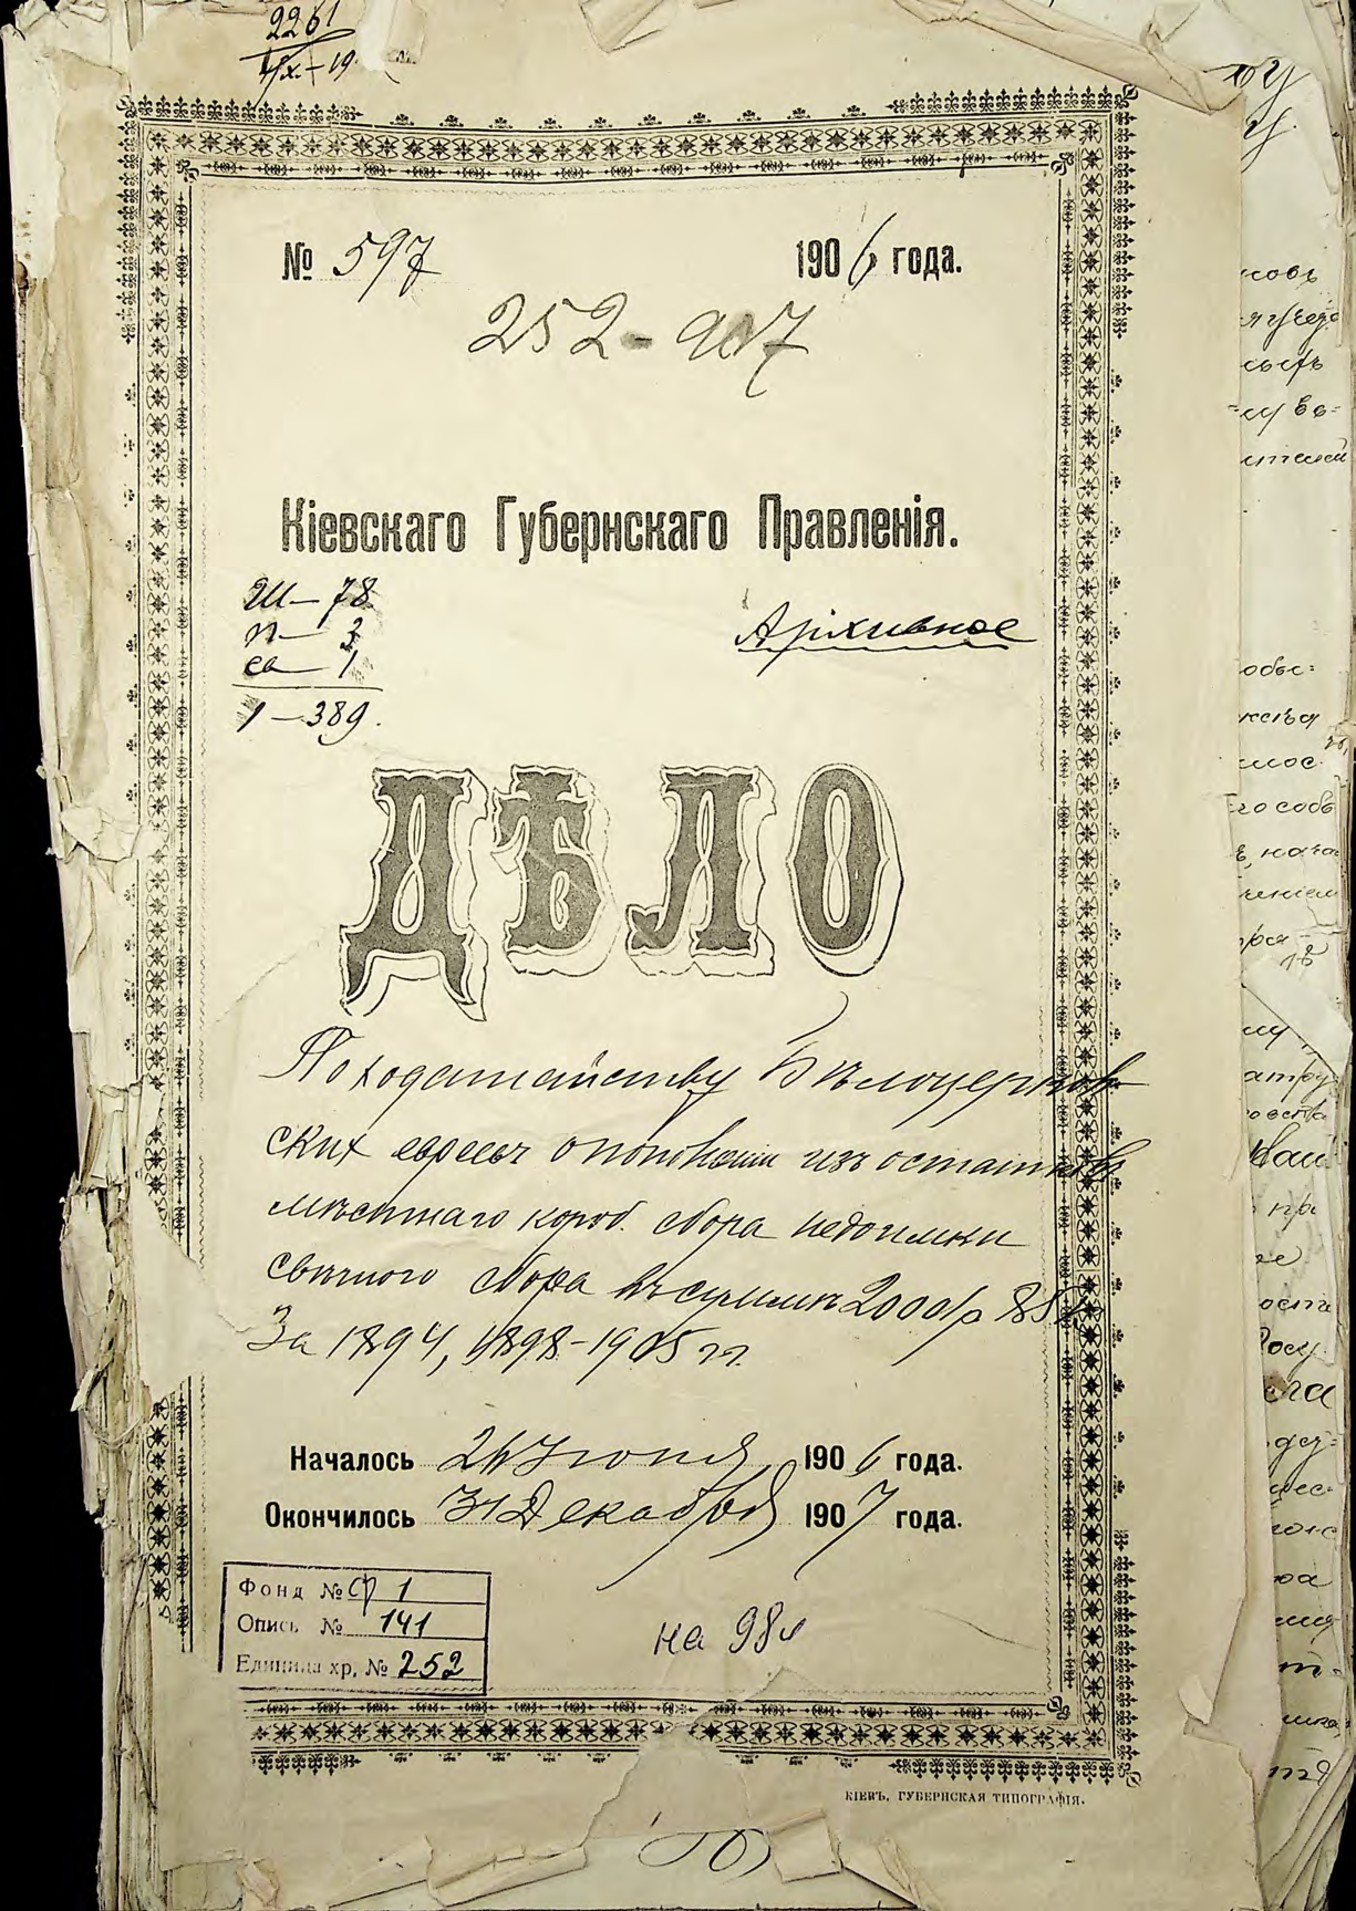 2261
№ 597 1906 года.
252-907
Кіевскаго Губернскаго Правленія.
Ш-78
п- 3
св- 1
Архивное
1-389.
ДѢЛО
По ходатайству Бѣлоцерков
ских евреевъ о пополненіи изъ остатков
мѣстнаго короб. сбора недоимки
свѣчного сбора въ суммѣ 2000 р 85
За 1894, 1898-1905 гг.
Началось 26 Іюня 1906 года.
Окончилось 31 Декабря 1907 года.
Фонд № 1
Опись № 141
Единица хр. № 252
на 98 л
КІЕВЪ. ГУБЕРНСКАЯ ТИПОГРАФІЯ.